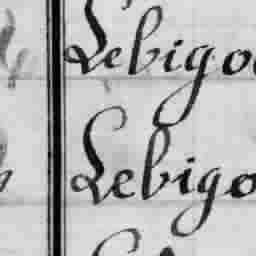 Lebigo
Lebigo